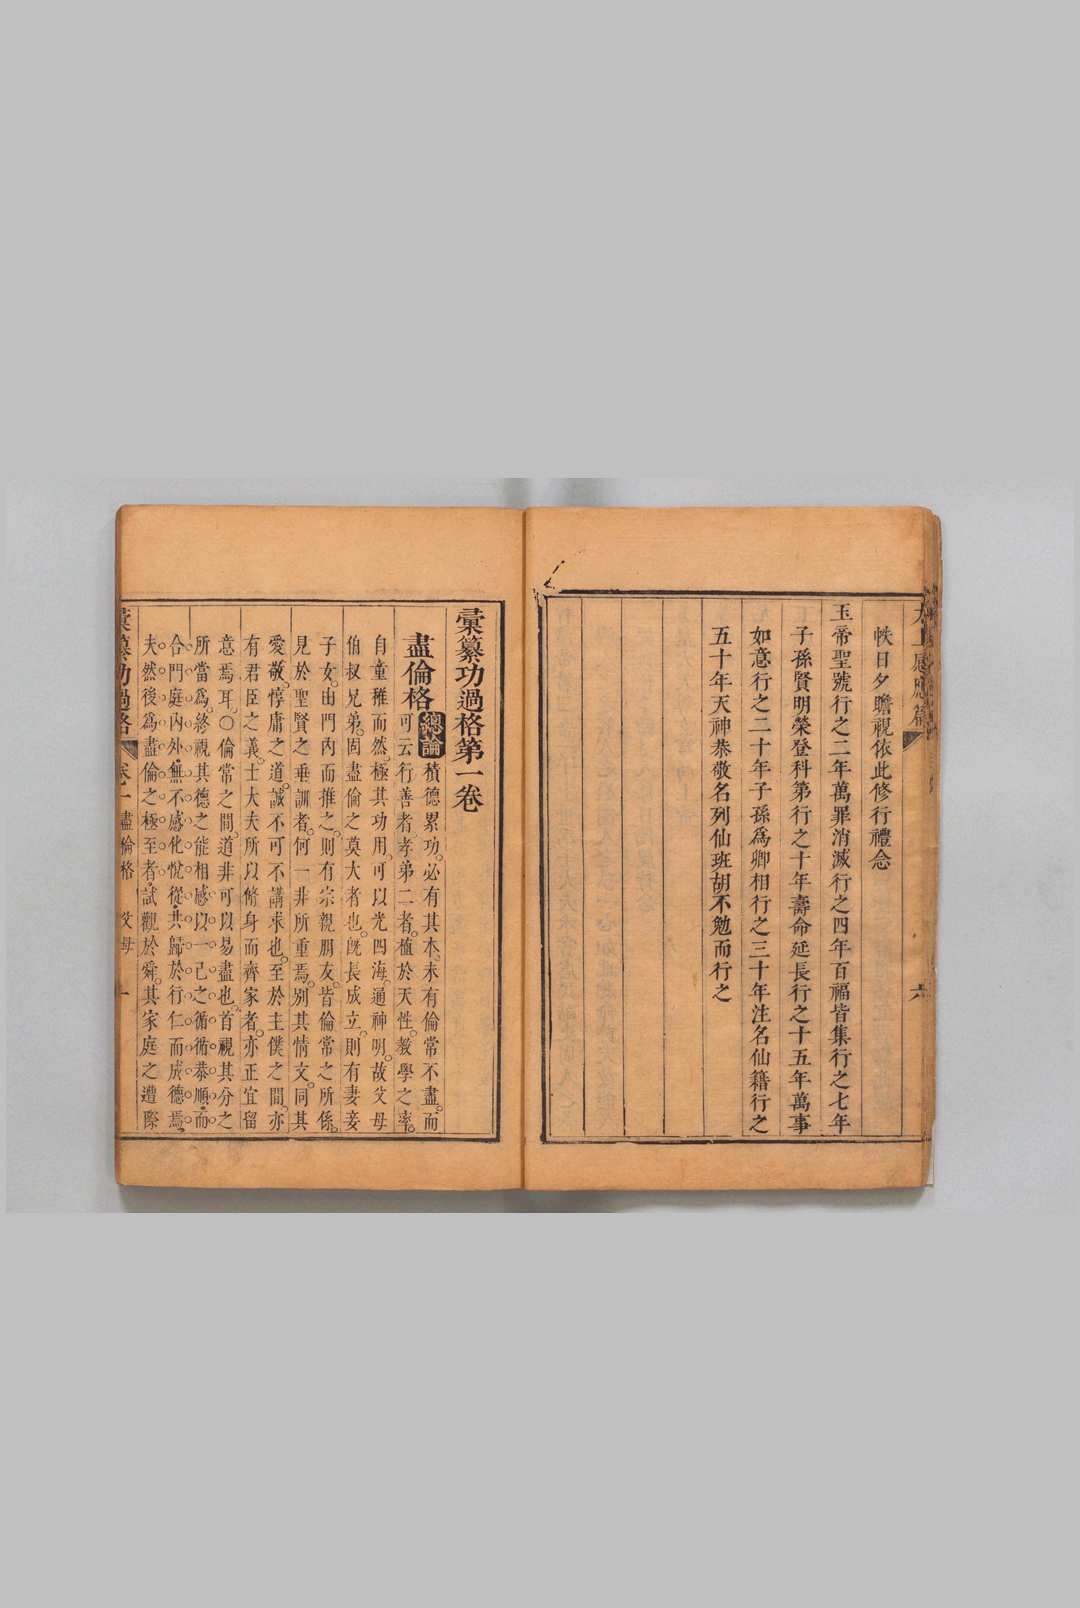 太上感應篇
六
帙日夕瞻視依此修行禮念
玉帝聖號行之二年萬罪消滅行之四年百福皆集行之七年
子孫賢明榮登科第行之十年壽命延長行之十五年萬事
如意行之二十年子孫爲卿相行之三十年注名仙籍行之
五十年天神恭敬名列仙班胡不勉而行之
彙纂功過格第一卷
盡倫格
總論
積德累功。必有其本。未有倫常不盡。而
可云行善者。孝弟二者。植於天性。教學之率。
自童稚而然。極其功用。可以光四海。通神明。故父母
伯叔兄弟。固盡倫之莫大者也。旣長成立。則有妻妾
子女。由門內而推之。則有宗親朋友。皆倫常之所係。
見於聖賢之垂訓者。何一非所重焉。別其情文。同其
愛敬。惇庸之道。誠不可不講求也。至於主僕之間。亦
有君臣之義。士大夫所以脩身而齊家者。亦正宜留
意焉耳。○倫常之間。道非可以易盡也。首視其分之
所當爲。終視其德之能相感。以一己之循循恭順。而
合門庭內外。無不感化悅從。共歸於行仁而成德焉。
夫然後爲盡倫之極至者。試觀於舜。其家庭之遭際
彙纂功過格
卷之一 盡倫格 父母 一